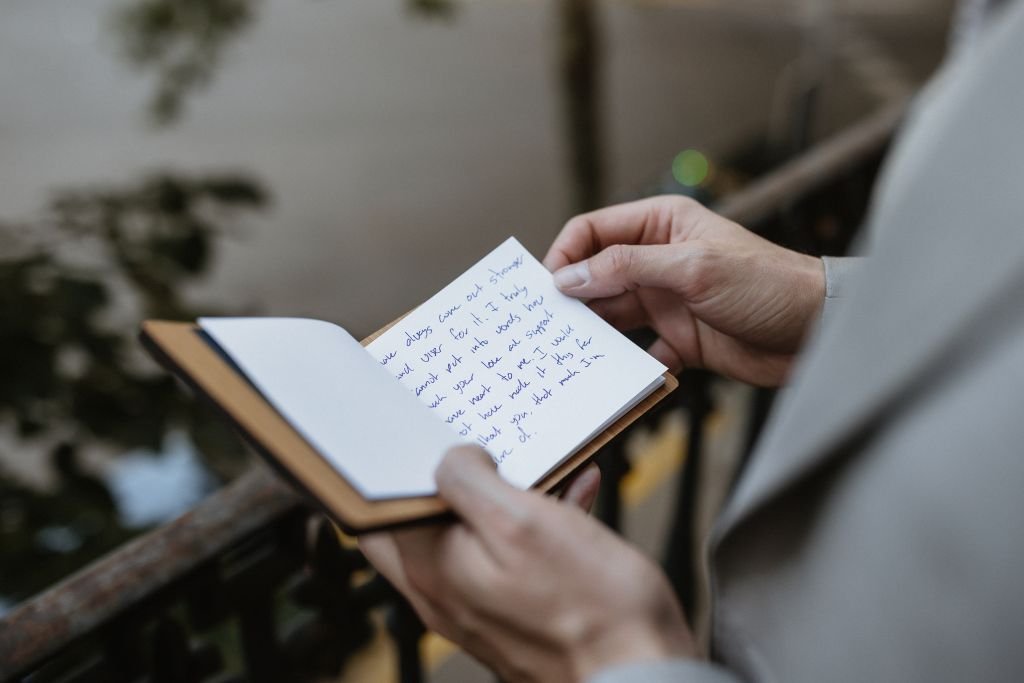 have always come out stronger
and wiser for it. I truly
cannot put into words how
much your love and support
have meant to me. I would
not have made it this far
without you, that much I'm
sure of.